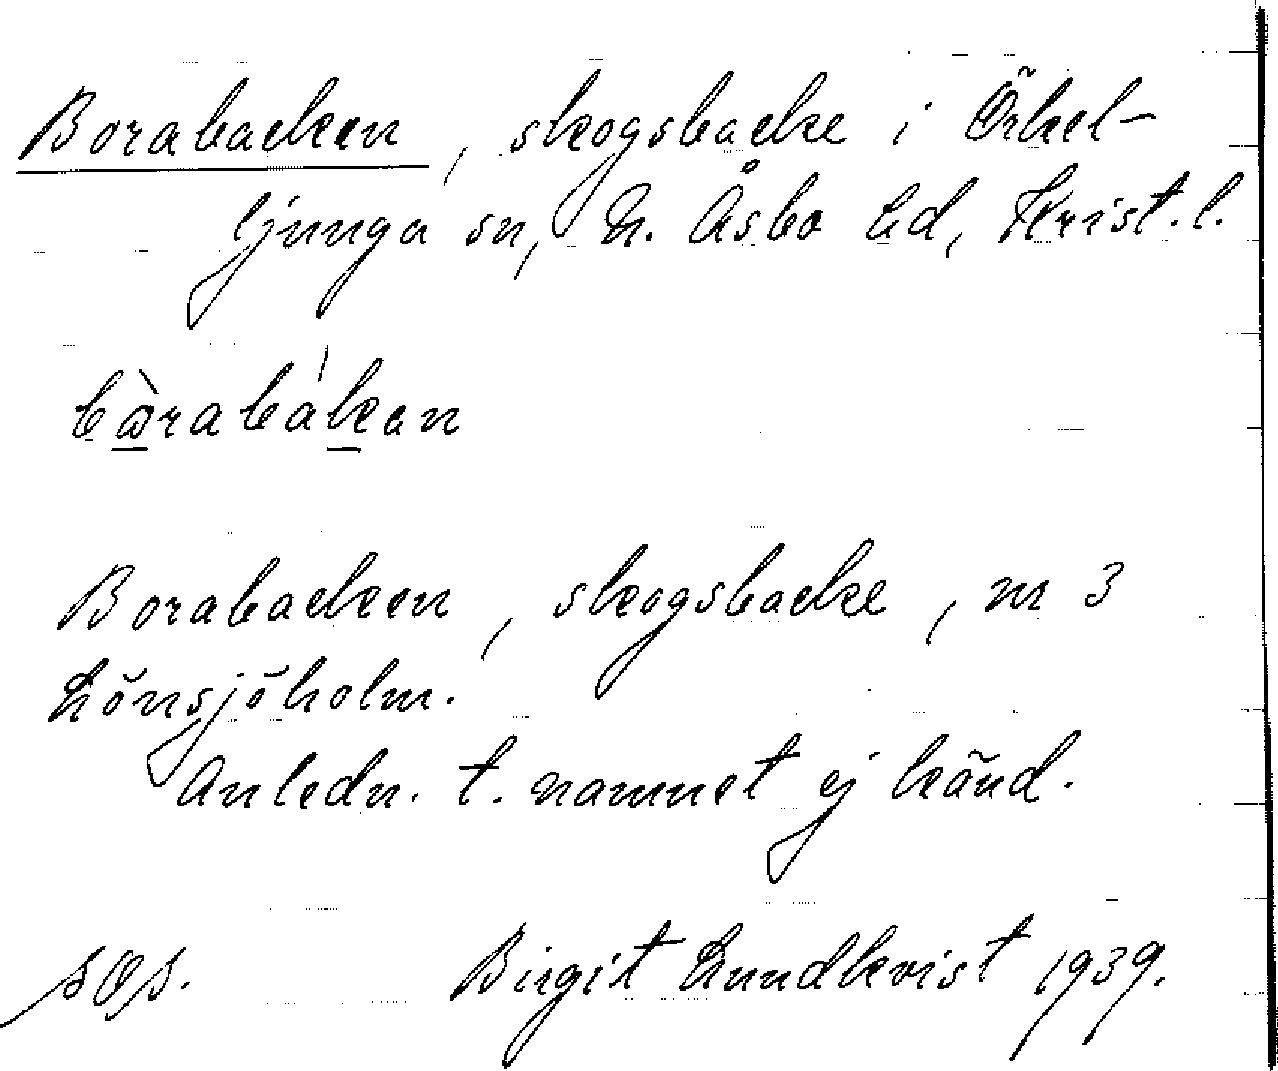 Borabacken, skogsbacke i Örkel-
ljunga sn, N. Åsbo hd, Krist. l.
bàrabákan
Borabacken, skogsbacke, nr 3
Lönsjöholm.
Anledn. t. namnet ej känd.
Birgit Lundkvist 1939.